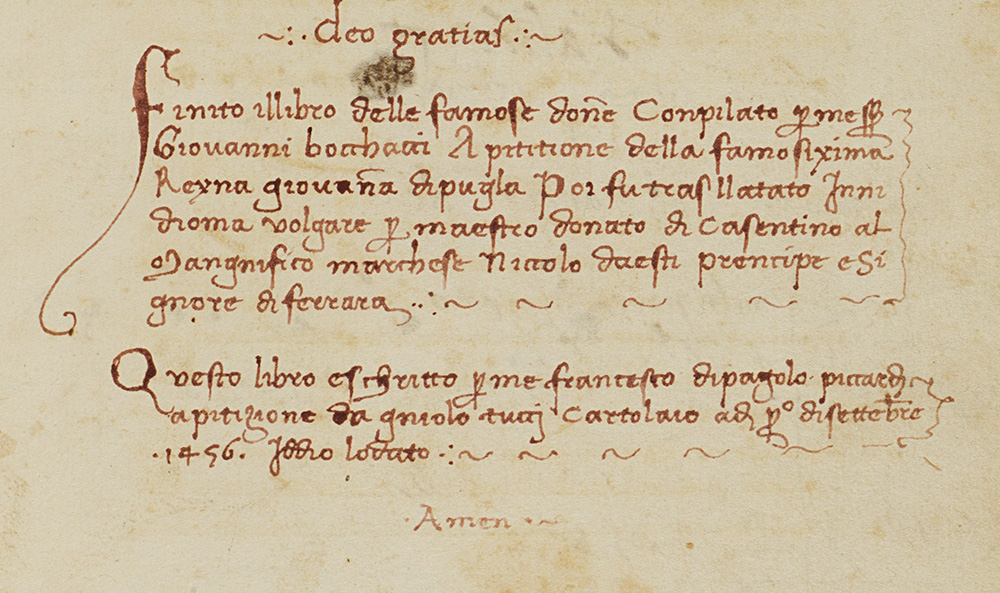 ~:· deo gratias ·:~
Finito illibro delle famose don̄e Conpilato ꝑ mess̄
Giovanni bocchacci A pititione della famosixima
Reyna giovan̄a dipugla Poi fu trasllatato Inni
dioma volgare ꝑ maestro donato di Casentino al
Mangnifico marchese Niccolo daesti prencipe e Si
gnore di ferrara ··: ~ ~ ~ ~ ~
Questo libro eschritto ꝑ me francesco dipagolo piccardi
apitizione da gniolo tucci Cartolaio adj pº disettēbre
·1456· Iddio lodato ·: ~ ~ ~ ~ ~
·Amen·~